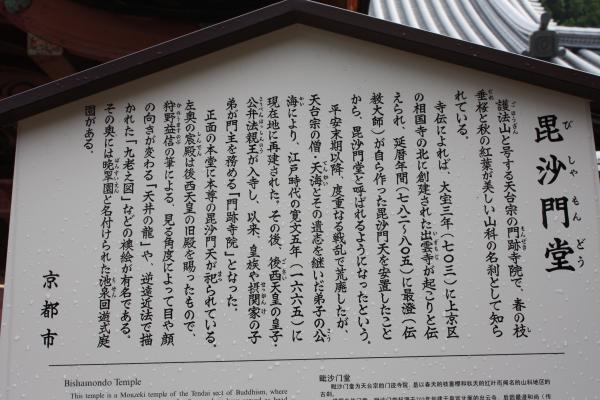 毘沙門堂
びしゃもんどう
護法山と号する天台宗の門跡寺院で、春の枝
垂桜と秋の紅葉が美しい山科の名刹として知ら
れている。
寺伝によれば、大宝三年（七〇三）に上京区
の相国寺の北に創建された出雲寺が起こりと伝
えられ、延暦年間（七八二〜八〇五）に最澄（伝
教大師）が自ら作った毘沙門天を安置したこと
から、毘沙門堂と呼ばれるようになったという。
平安末期以降、度重なる戦乱で荒廃したが、
天台宗の僧・天海とその遺志を継いだ弟子の公
海により、江戸時代の寛文五年（一六六五）に
現在地に再建された。その後、後西天皇の皇子・
公弁法親王が入寺し、以来、皇族や摂関家の子
弟が門主を務める「門跡寺院」となった。
正面の本堂に本尊の毘沙門天が祀られている。
左奥の宸殿は後西天皇の旧殿を賜ったもので、
狩野益信の筆による、見る角度によって目や顔
の向きが変わる「天井の龍」や、逆遠近法で描
かれた「九老之図」などの襖絵が有名である。
その奥には晩翠園と名付けられた池泉回遊式庭
園がある。
京都市
Bishamondo Temple
This temple is a Monzeki temple of the Tendai sect of Buddhism, where
毗沙门堂
毗沙门堂为天台宗的门迹寺院，是以春天的枝垂樱和秋天的红叶而闻名的山科地区的
古刹。